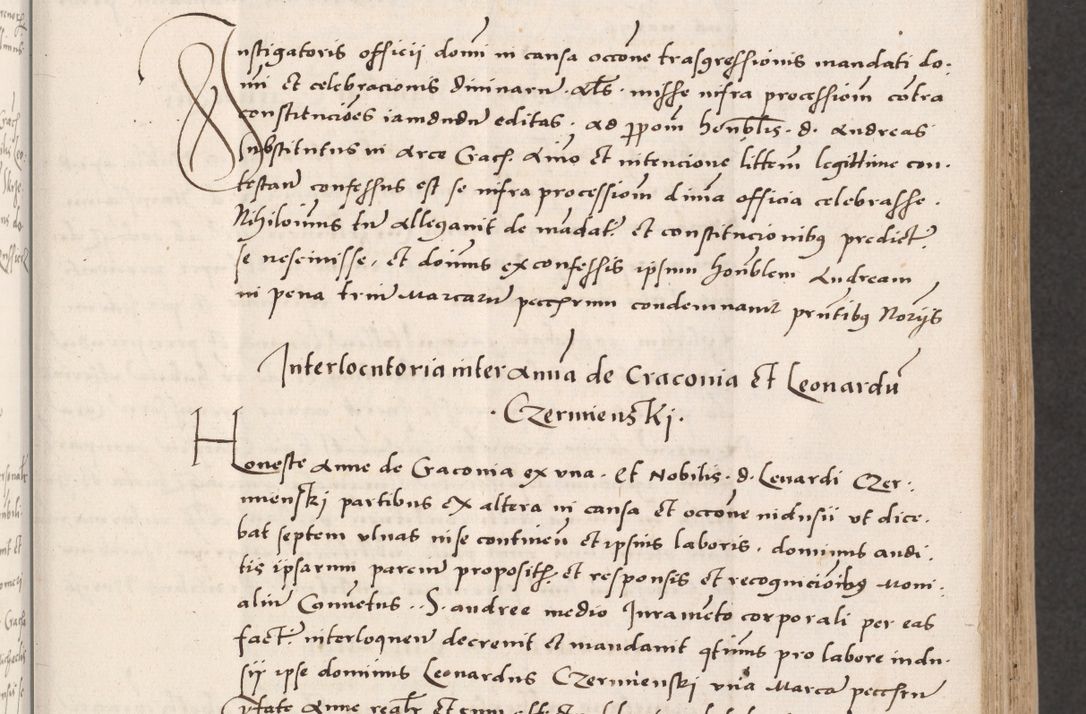 Instigatoris officii domi in causa occōne trāsgressionis mandati do·
ini et celebracionis diuinarū · aɫs · misse infra processioīm cōtra
constitucioēs iamdudū editas · ad ꝓpoīm honbɫis · d · Andreas
substitutus in Arce Crac̄ · Aīo et intencione littem legittime con·
testan̄ confessus est se infra processioīm diuīa officia celebrasse ·
Nihiloīmus tn̄ allegauit de mādat̄ et constitucionibꝫ predict̄
se nesciuisse · et doīmus ex confessis ipsum honblem Andream
in pena triū Marcarū peccārum condemnauit prn̄tibꝫ Norijs
Interlocutoria inter Annā de Craconia et Leonardū
· Czermienski ·
Honeste Anne de Craconia ex vna · Et Nobilis · d · Lenardi Czer·
mienski partibus ex altera in causa et occōne indusii vt dice·
bat septem vlnas in se continen̄ et ipsius laboris · dominus audi·
tis ipsarum parciū proposit̄ · et responsis et recognicioībꝫ Moni·
aliū Conuetus · S · andree medio Iuramēto corporali per eas
fact̄ · interloquen̄ decreuit et mandauit qtīnus pro labore indu·
sii ipse dominus Leonardus Czermienski vnā Marcā peccārū